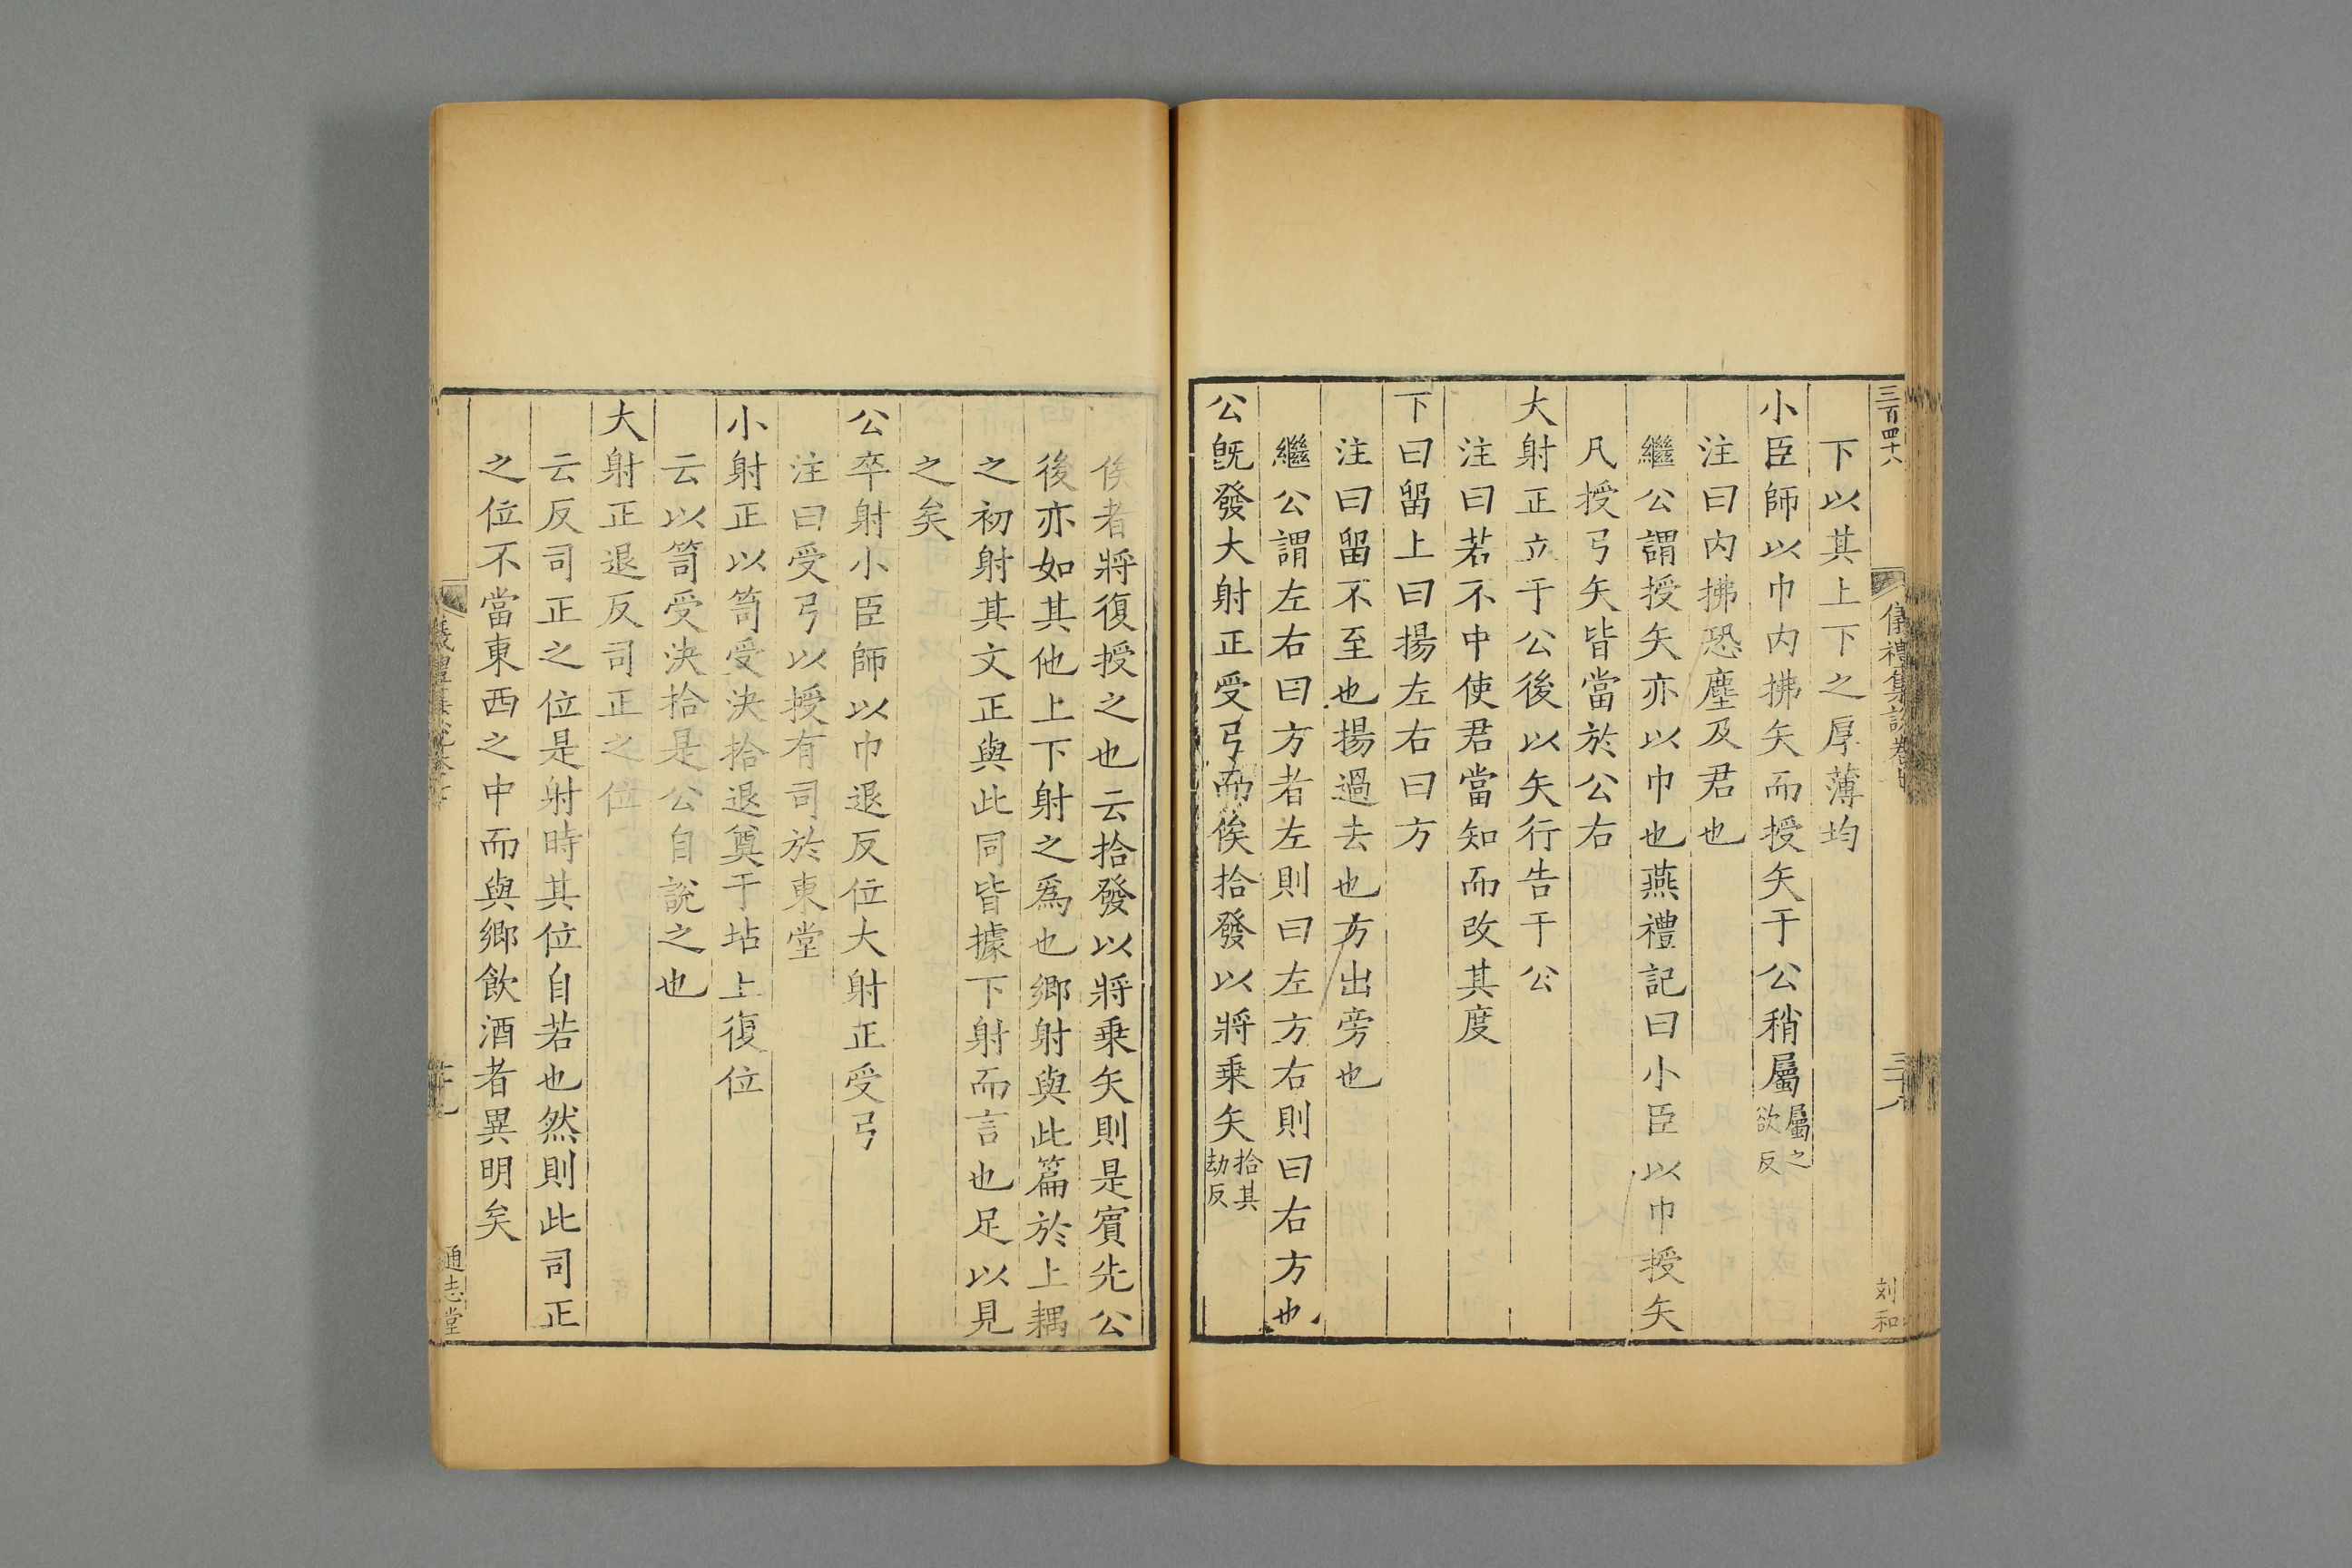 三百四十八
儀禮集說卷
三十八
刘和
下以其上下之厚薄均
小臣師以巾内拂矢而授矢于公稍屬屬之欲反
注曰内拂恐塵及君也
繼公謂授矢亦以巾也燕禮記曰小臣以巾授矢
凡授弓矢皆當於公右
大射正立于公後以矢行告于公
注曰若不中使君當知而改其度
下曰畱上曰揚左右曰方
注曰畱不至也揚過去也方出旁也
繼公謂左右曰方者左則曰左方右則曰右方也
公旣發大射正受弓而俟拾發以將乗矢拾其劫反
俟者將復授之也云拾發以將乗矢則是賓先公
後亦如其他上下射之爲也鄉射與此篇於上耦
之初射其文正與此同皆據下射而言也足以見
之矣
公卒射小臣師以巾退反位大射正受弓
注曰受弓以授有司於東堂
小射正以笥受決拾退奠于坫上復位
云以笥受決拾是公自說之也
大射正退反司正之位
云反司正之位是射時其位自若也然則此司正
之位不當東西之中而與鄉飲酒者異明矣
通志堂